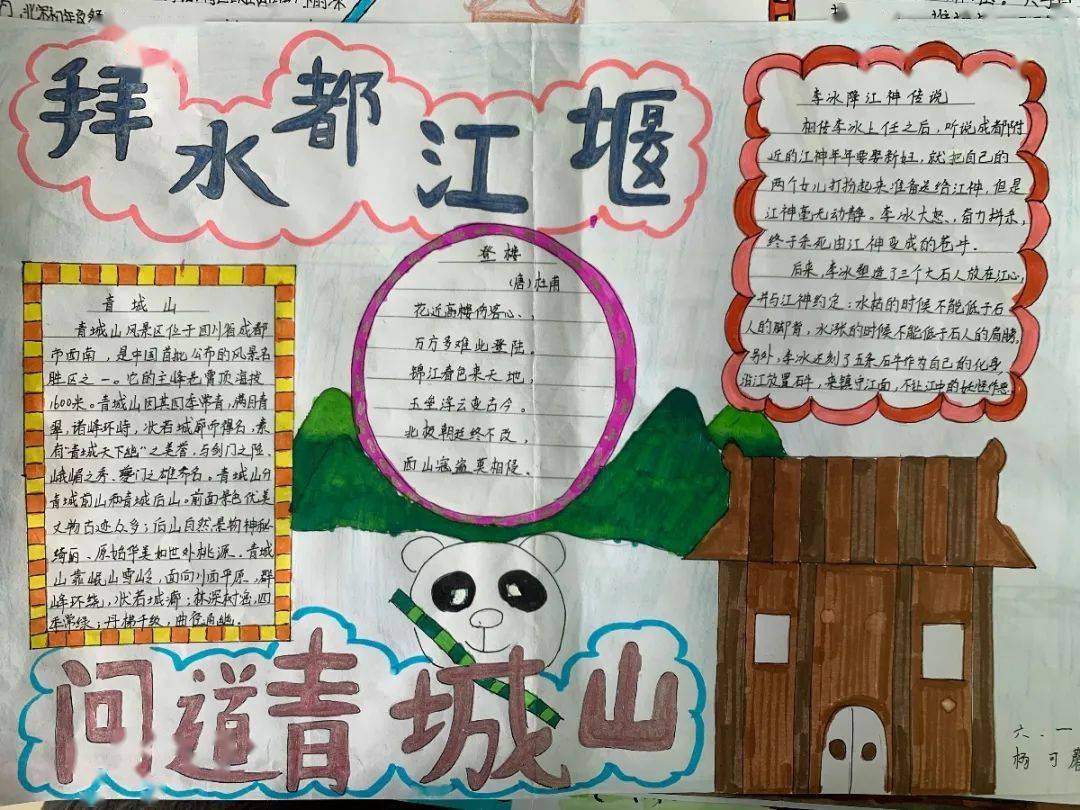 拜水都江堰
李冰降江神传说
相传李冰上任之后，听说成都附
近的江神年年要娶新妇，就把自己的
两个女儿打扮起来准备送给江神，但是
江神毫无动静。李冰大怒，奋力拼杀，
终于杀死由江神变成的苍牛.
后来，李冰塑造了三个大石人放在江心，
并与江神约定：水枯的时候不能低于石
人的脚背，水涨的时候不能低于石人的肩膀。
另外，李冰还刻了五条石牛作为自己的化身
沿江放置石牛，来镇守江面，不让江中的妖怪作恶
登楼
(唐)杜甫
花近高楼伤客心，
万方多难此登陆。
锦江春色来天地，
玉垒浮云变古今。
北极朝廷终不改，
西山寇盗莫相侵。
青城山
青城山风景区位于四川省成都
市西南，是中国首批公布的风景名
胜区之一。它的主峰老霄顶海拔
1600米。青城山因其四季常青，满目青
翠，诸峰环峙，状若城廓而得名，素
有“青城天下幽”之美誉，与剑门之险、
峨嵋之秀、夔门之雄齐名。青城山分
青城前山和青城后山。前面景色优美
文物古迹众多；后山自然景物神秘
绮丽、原始华美如世外桃源。青城
山靠岷山雪岭，面向川西平原，群
峰环绕，状若城廓；林深树密，四
季常绿；丹梯千级，曲径通幽.
问道青城山
六.一
杨可馨